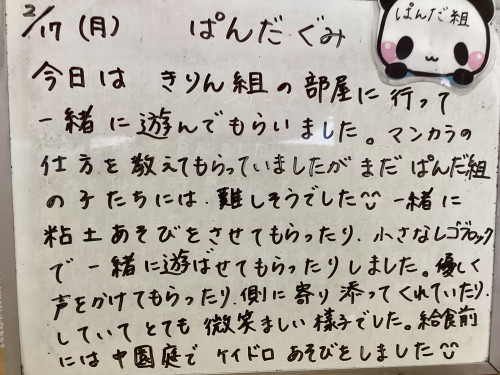 2/17(月) ぱんだぐみ
ぱんだ組
今日は きりん組の部屋に行って
一緒に遊んでもらいました。マンカラの
仕方を教えてもらっていましたがまだぱんだ組
の子たちには、難しそうでした 一緒に
粘土あそびをさせてもらったり、小さなレゴブロック
で一緒に遊ばせてもらったりしました。優しく
声をかけてもらったり、側に寄り添ってくれていたり、
していてとても微笑ましい様子でした。給食前
には中園庭でケイドロあそびをしました